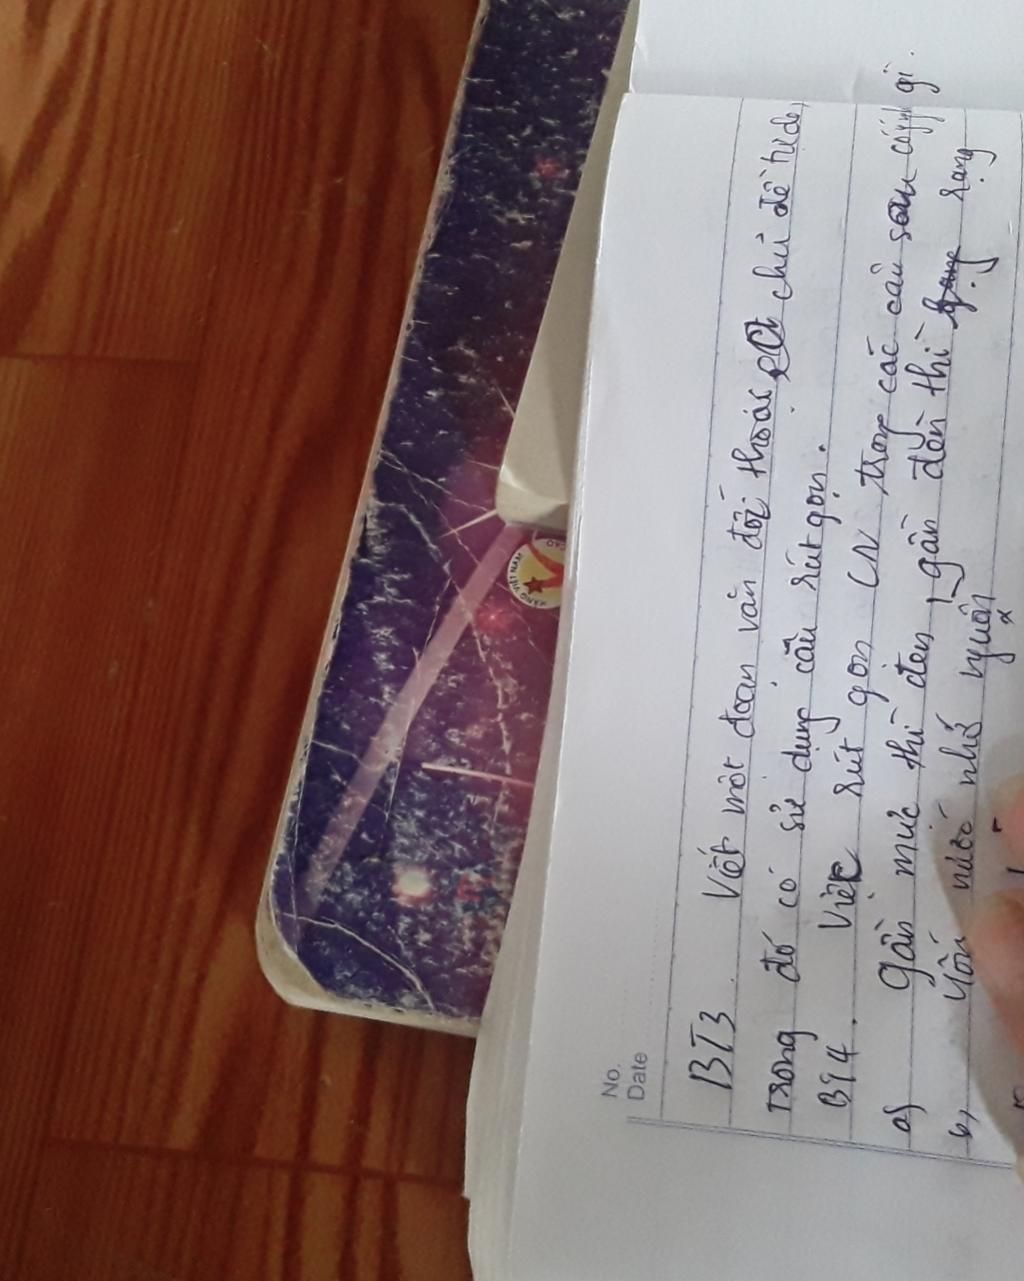 No.
Date
BT3 Viết một đoạn văn đối thoại chủ đề tự do,
trong đó có sử dụng câu rút gọn.
BT4. Việc rút gọn CN trong các câu sau có ý gì.
a) Gần mực thì đen, gần đèn thì rạng
b, Uống nước nhớ nguồn
HÀNG VIỆT NAM
CAO